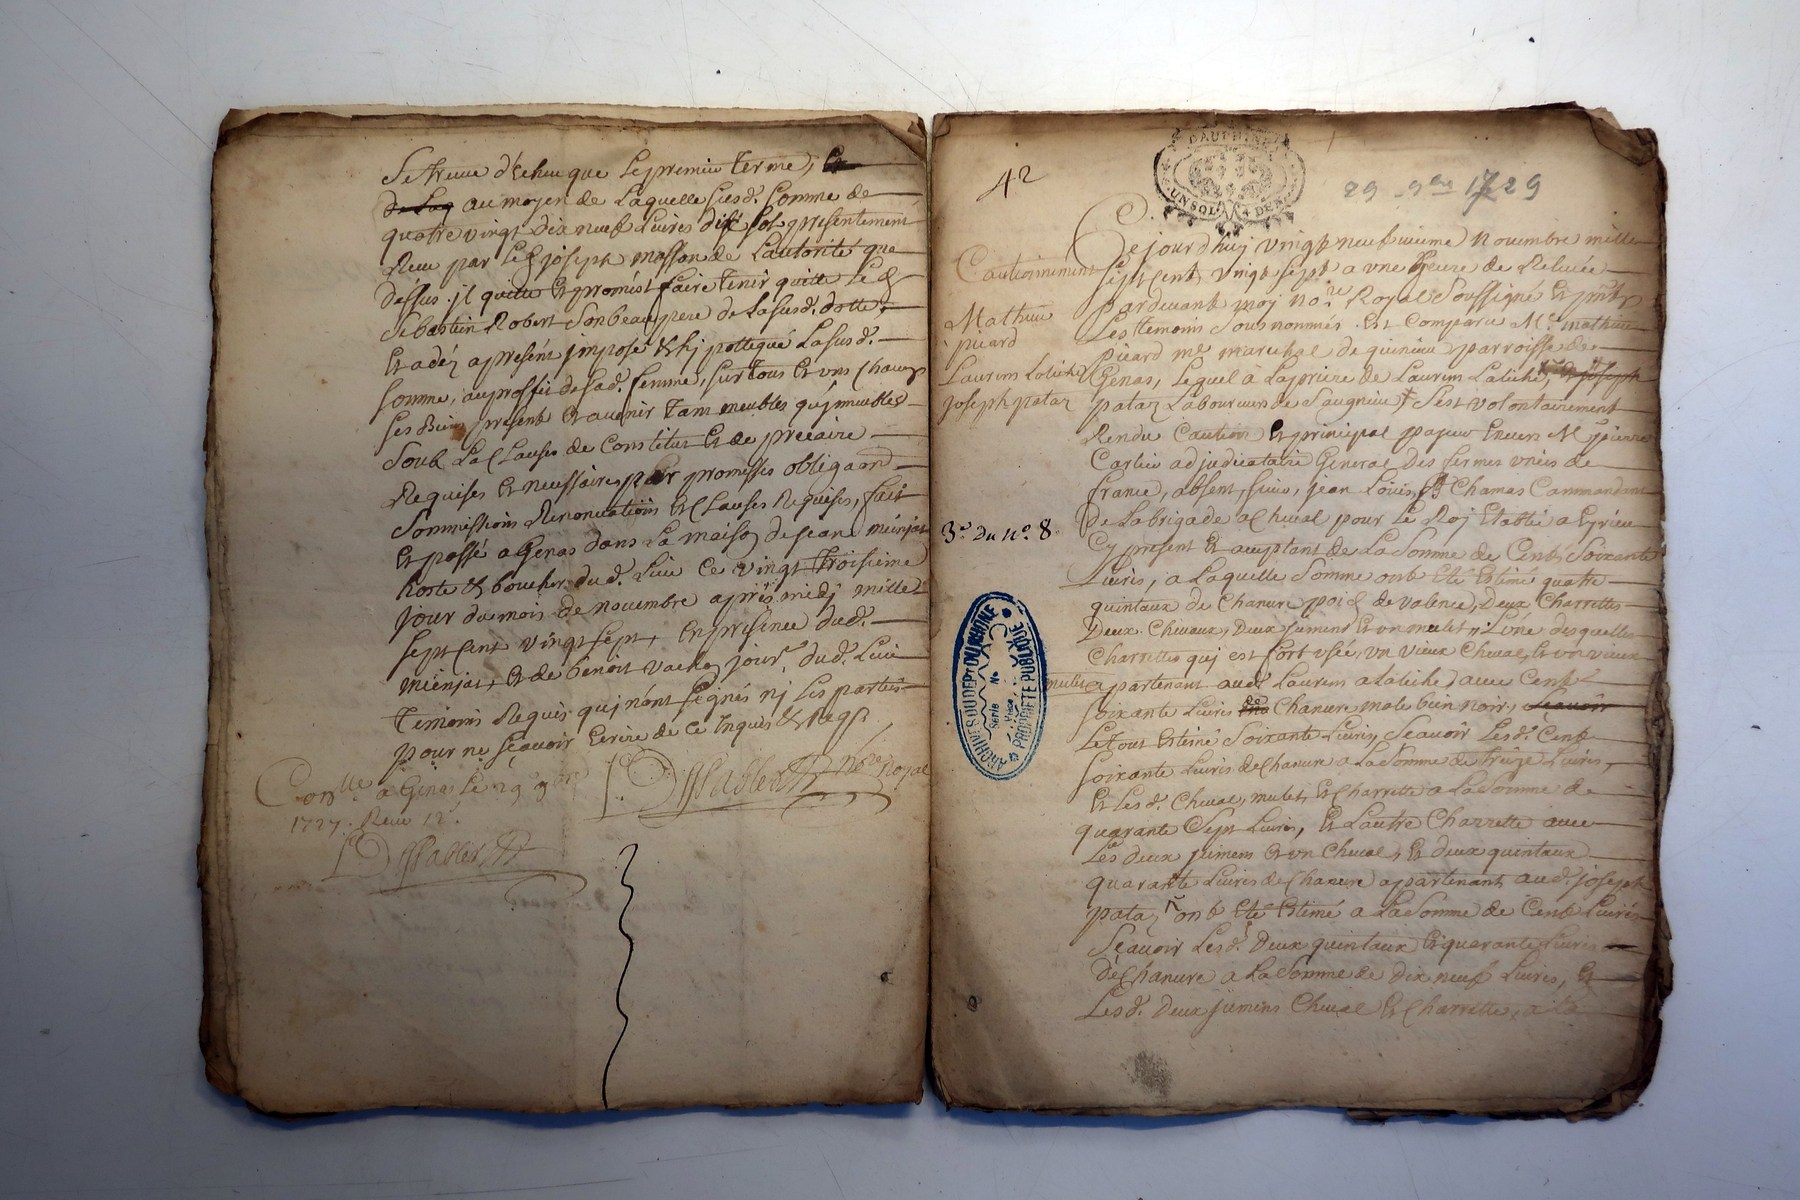 se treuve d'echeu que le premier terme, et
de laq au moyen de laquelle susd. somme de
quatre vingt dix neuf livres dix sols presentement
Reçeu par le Sr joseph masson de l'autorité que
dessus il quitte et promést faire tenir quitte led Sr
Sebastein Robert son beaupere de la susd. dotte
Et a déz apresént jmposé & hjpottequé la susd.
somme, au proffit de sad. femme, sur tous et vns chacuns
ses biens present et avenir tant meubles qu'jmeubles
soub la Clauses de Constitut et de precaire
Requises et neussaires par promesses obligaõns
sommissions Renonciations et Clauses Requises, fait
Et passé a Genas dans la maison de jean miénjat
hoste & boucher dud. lieu ce vingt troisieme
jour du mois de novembre apres midj mille
sept cent vingt sept, en presence dud.
miénjat, et de benoit vache jour.r dud. lieu
temoins Requis quj n'ont signés nj les parties
pour ne sçavoir Ecrire de ce Inquis & Reqs.
Conlle a Genas le 29 9bre
1727. Reçeu 12 s.
nore royal
42
DAUPHINE
UN SOL 4 DEN
29 9bre 1729
Cejourd'huj vingt neufuieme Novembre mille
Cautionnement
sept cent vingt sept a vne heure de Relevée
pardevant moj nore Royal soussigné et pnts
Mathieu
Les temoins sousnommés est comparu Me. mathieu
picard
picard me marechal de parroisse de
Laurens Latiche
Genas, lequel à la priere de Laurens Latiche, & joseph
joseph pataz
pataz Laboureurs de Saugnieu s'est volontairement
Rendu Caution et principal payeur Envers Me pierre
Carlier adjudicataire General des fermes vnies de
france, absent, sieur, jean Loüis St Chamas Commandant
3e Du No. 8
De la brigade a Cheval pour le Roj Etablie a Eyrieu
Cy present et acceptant de la somme de Cent soixante
Livres, a laquelle somme ont Eté Estimé quatre
quintaux de Chanure poid de valence, Deux Charrettes
Deux Chevaux, Deux jumens et vn mulet, L'une desquelles
Charrettes quj est fort vsée, vn vieux Cheval, et vn vieux
mulet apartenant aud Laurens a latiche avec Cent
soixante livres de Chanure mole bien noir, sçavoir
Le tout Estimé soixante livres, sçavoir Lesd. Cent
soixante livres de Chanure a la somme de treize livres,
Et lesd. Cheval, mulet, et Charrette a la somme de
quarante sept livres, Et l'autre Charrette avec
Les deux jumens et vn Cheval, et deux quintaux
quarante livres de Chanure apartenant aud. joseph
pataz ont Eté Estimé a la somme de Cent livres
Sçavoir Lesd. Deux quintaux et quarante livres
de Chanure a la somme de Dix neuf livres, et
Lesd. Deux jumens Cheval et Charrette, a la
ARCHIVES DU DEPT DU RHONE
Serie No
Pièce
PROPRIETE PUBLIQUE